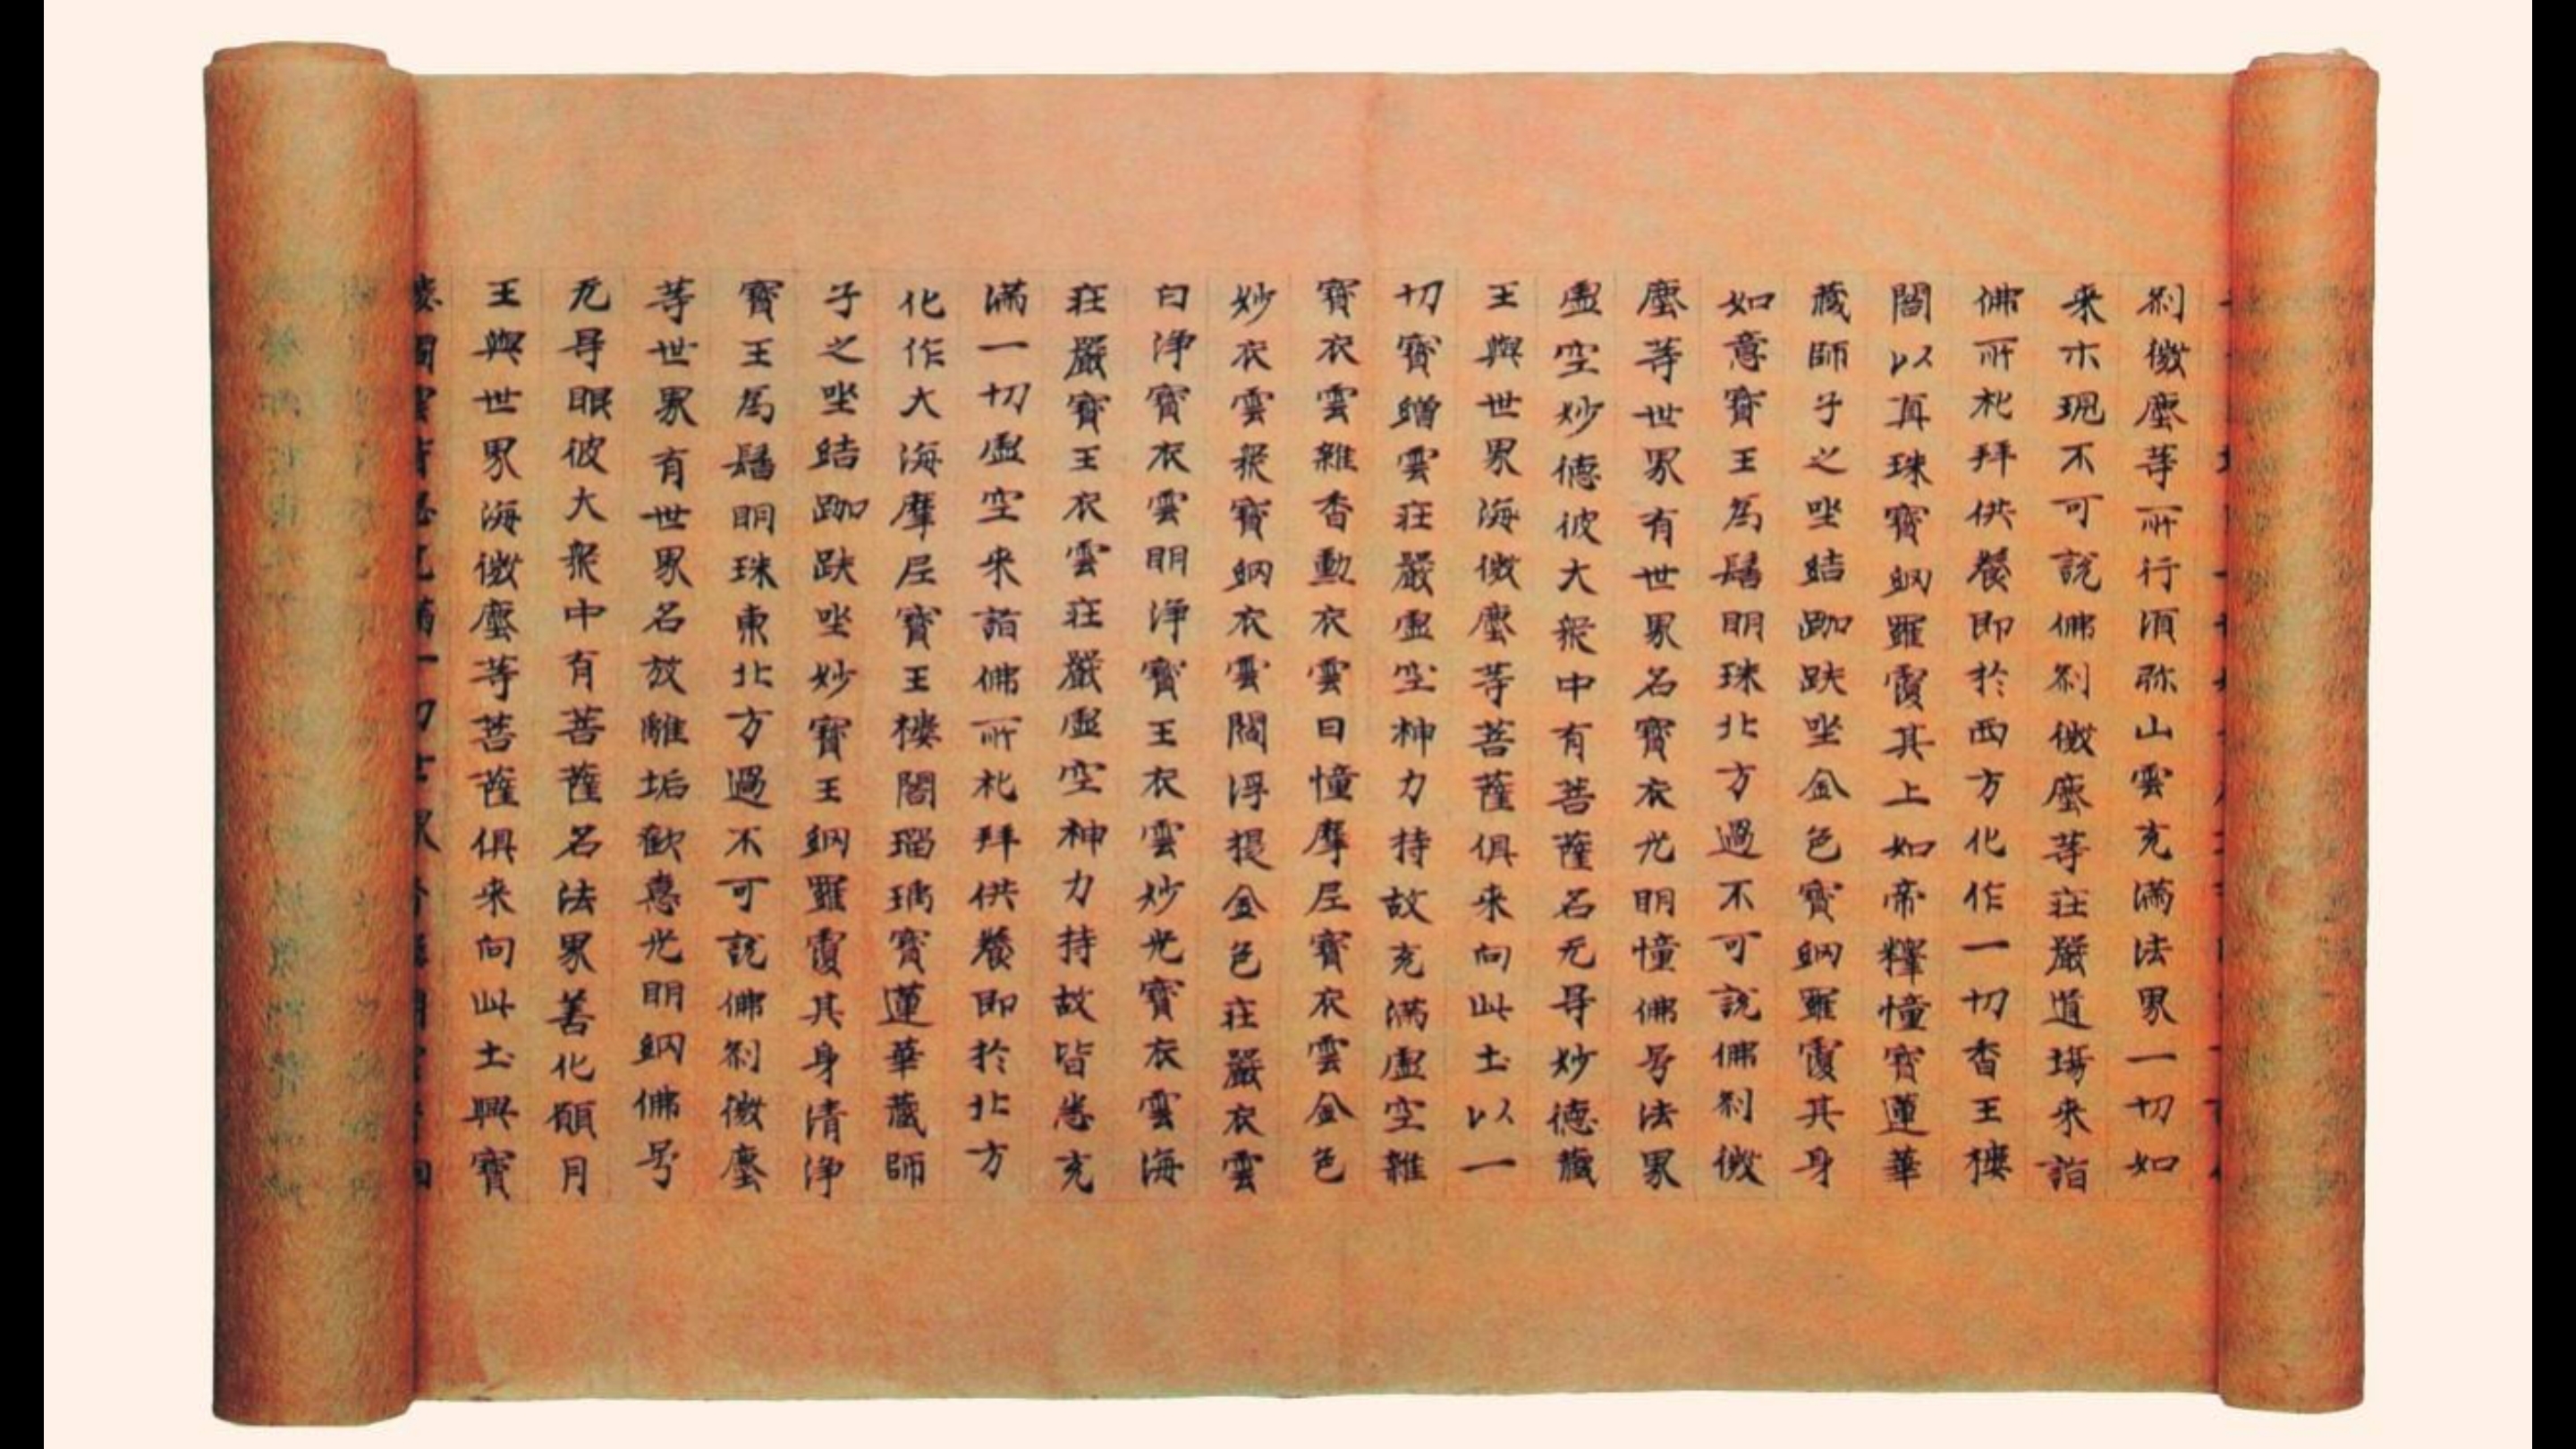 刹微塵等所行須弥山雲充滿法界一切如
来示現不可說佛刹微塵等荘嚴道場来詣
佛所礼拜供養即於西方化作一切香王樓
閣以真珠寶網羅覆其上如帝釋幢寶蓮華
藏師子之坐結跏趺坐金色寶網羅覆其身
如意寶王爲髻明珠北方過不可說佛刹微
塵等世界有世界名寶衣光明幢佛号法界
虛空妙德彼大衆中有菩薩名无㝵妙德藏
王與世界海微塵等菩薩俱来向此土以一
切寶繒雲荘嚴虛空神力持故充滿虛空雜
寶衣雲雜香勳衣雲日幢摩尼寶衣雲金色
妙衣雲衆寶網衣雲閻浮提金色荘嚴衣雲
白淨寶衣雲明淨寶王衣雲妙光寶衣雲海
荘嚴寶王衣雲荘嚴虛空神力持故皆悉充
滿一切虛空来詣佛所礼拜供養即於北方
化作大海摩尼寶王樓閣瑠璃寶蓮華藏師
子之坐結跏趺坐妙寶王網羅覆其身清淨
寶王爲髻明珠東北方過不可說佛刹微塵
等世界有世界名放離垢歡憙光明網佛号
无㝵眼彼大衆中有菩薩名法界善化願月
王與世界海微塵等菩薩俱来向此土興寶